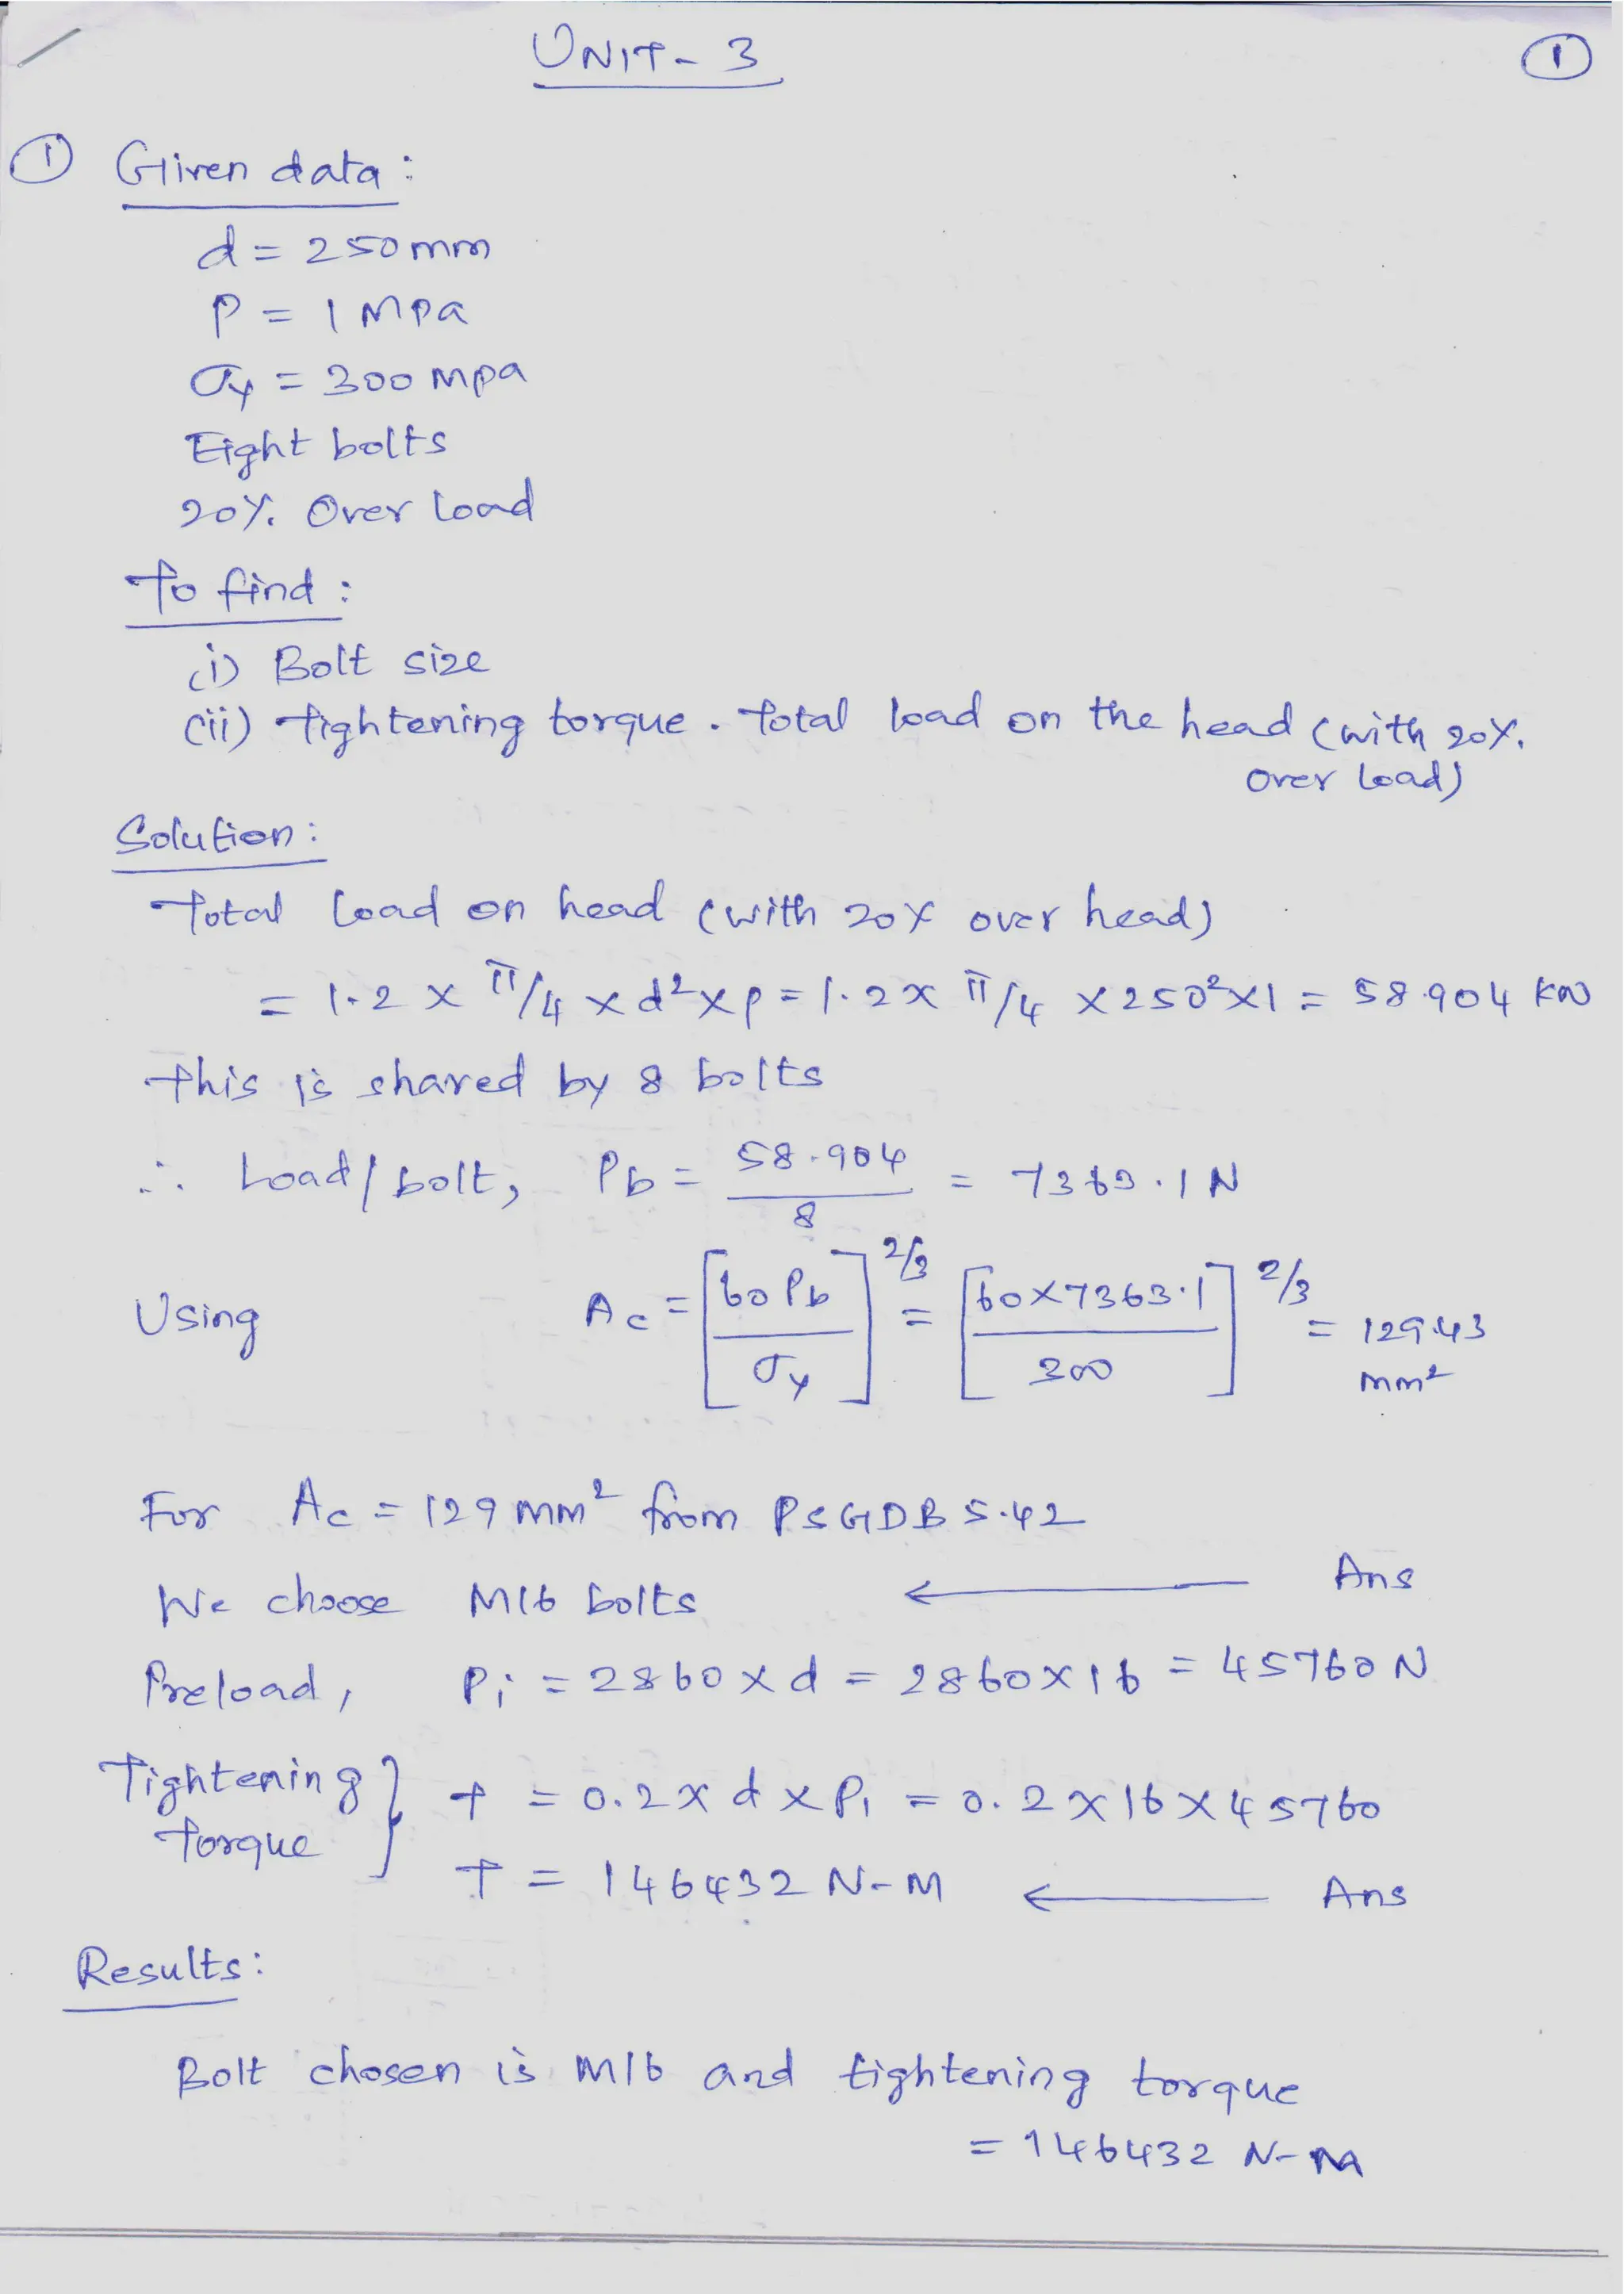 UNIT - 3
①
① Given data :
d = 250mm
P = 1 Mpa
σy = 300 Mpa
Eight bolts
20%. Over load
To find :
(i) Bolt size
(ii) Tightening torque . Total load on the head (with 20%.
over load)
Solution :
Total load on head (with 20% over head)
= 1.2 × π/4 × d² × p = 1.2 × π/4 × 250² × 1 = 58.904 KN
This is shared by 8 bolts
∴ Load / bolt, Pb = 58.904 / 8 = 7363.1 N
Using Ac = [60 Pb / σy]^2/3 = [60×7363.1 / 300]^2/3 = 129.43
mm²
For Ac = 129 mm² from PSGDB 5.42
We choose M16 bolts ← Ans
Preload, Pi = 2860 × d = 2860×16 = 45760 N
Tightening torque } T = 0.2 × d × Pi = 0.2 × 16 × 45760
T = 146432 N-M ← Ans
Results :
Bolt chosen is M16 and tightening torque
= 146432 N-M